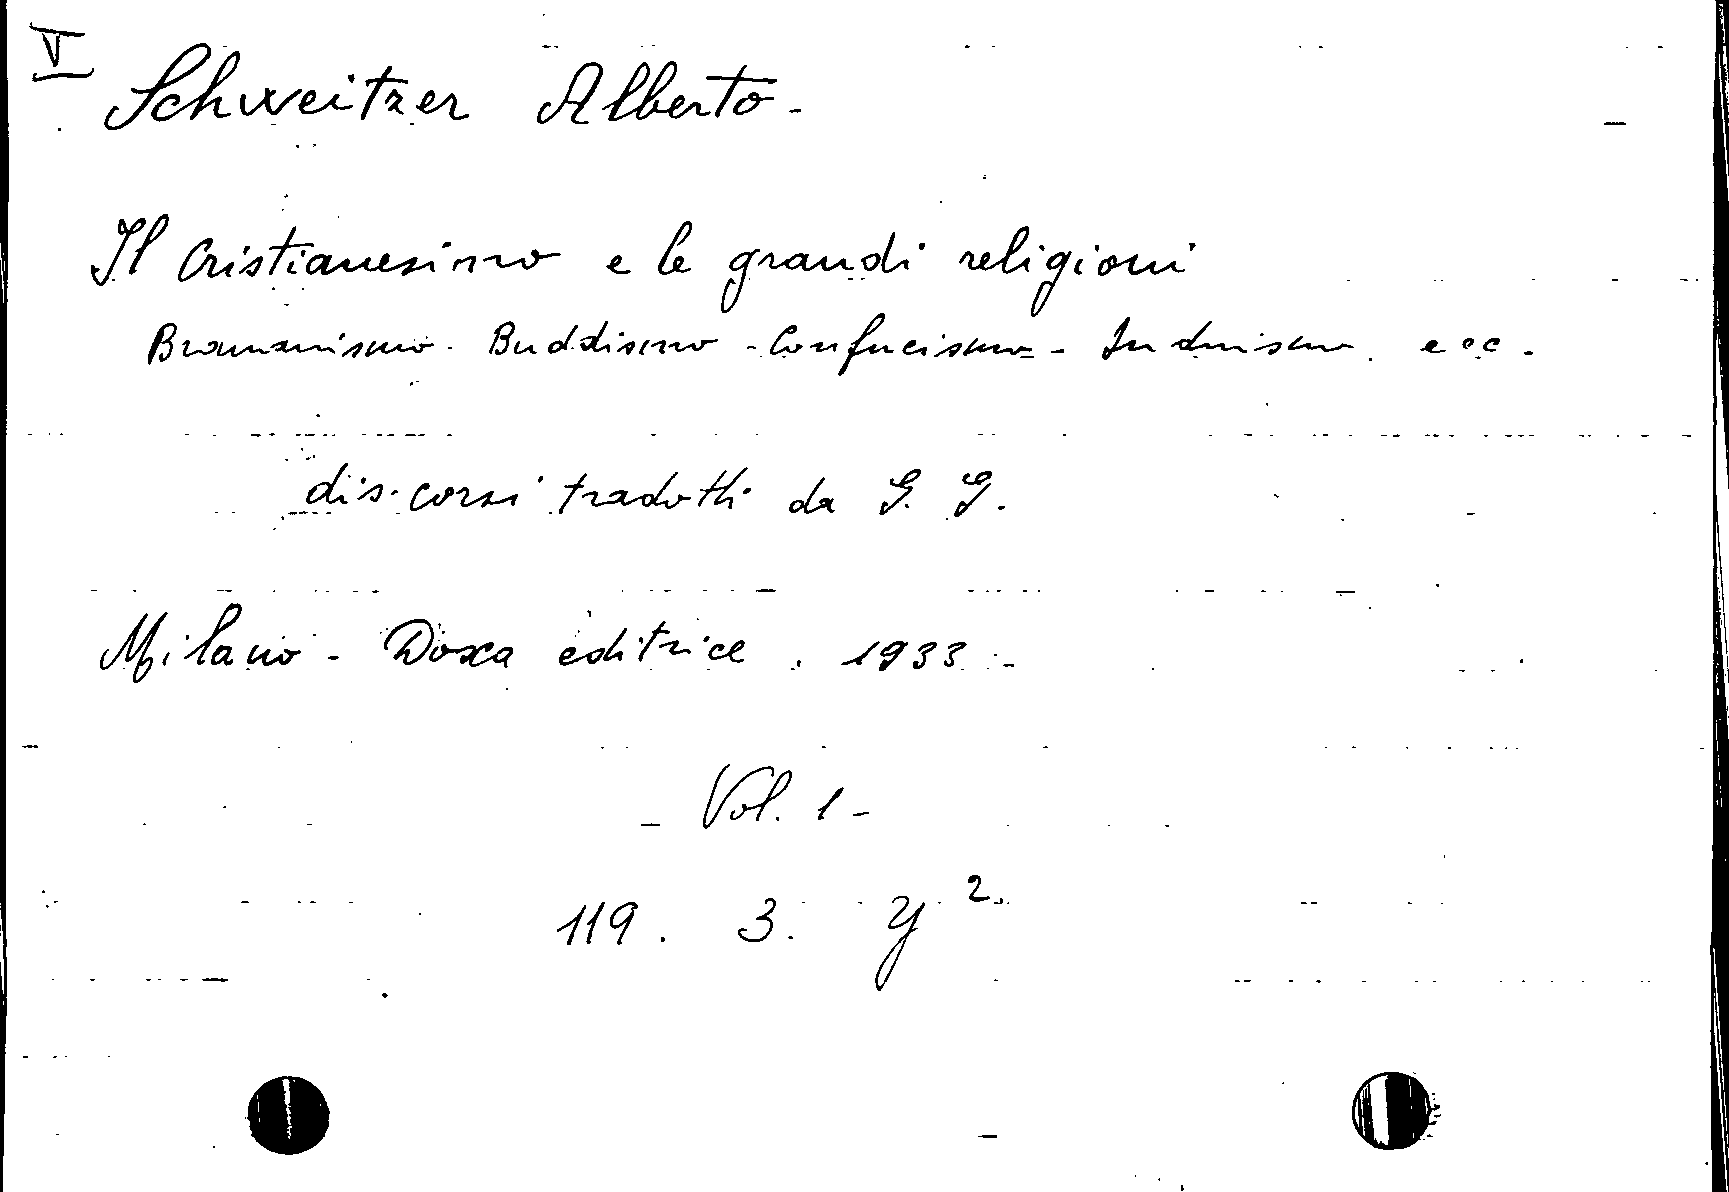 V
Schweitzer Alberto -
Il Cristianesimo e le grandi religioni
Bramanismo - Buddismo - Confucismo - Induismo. ecc.
discorsi tradotti da G. G.
Milano - Doxa editrice. 1933 -
- Vol. 1 -
119. 3. y ²